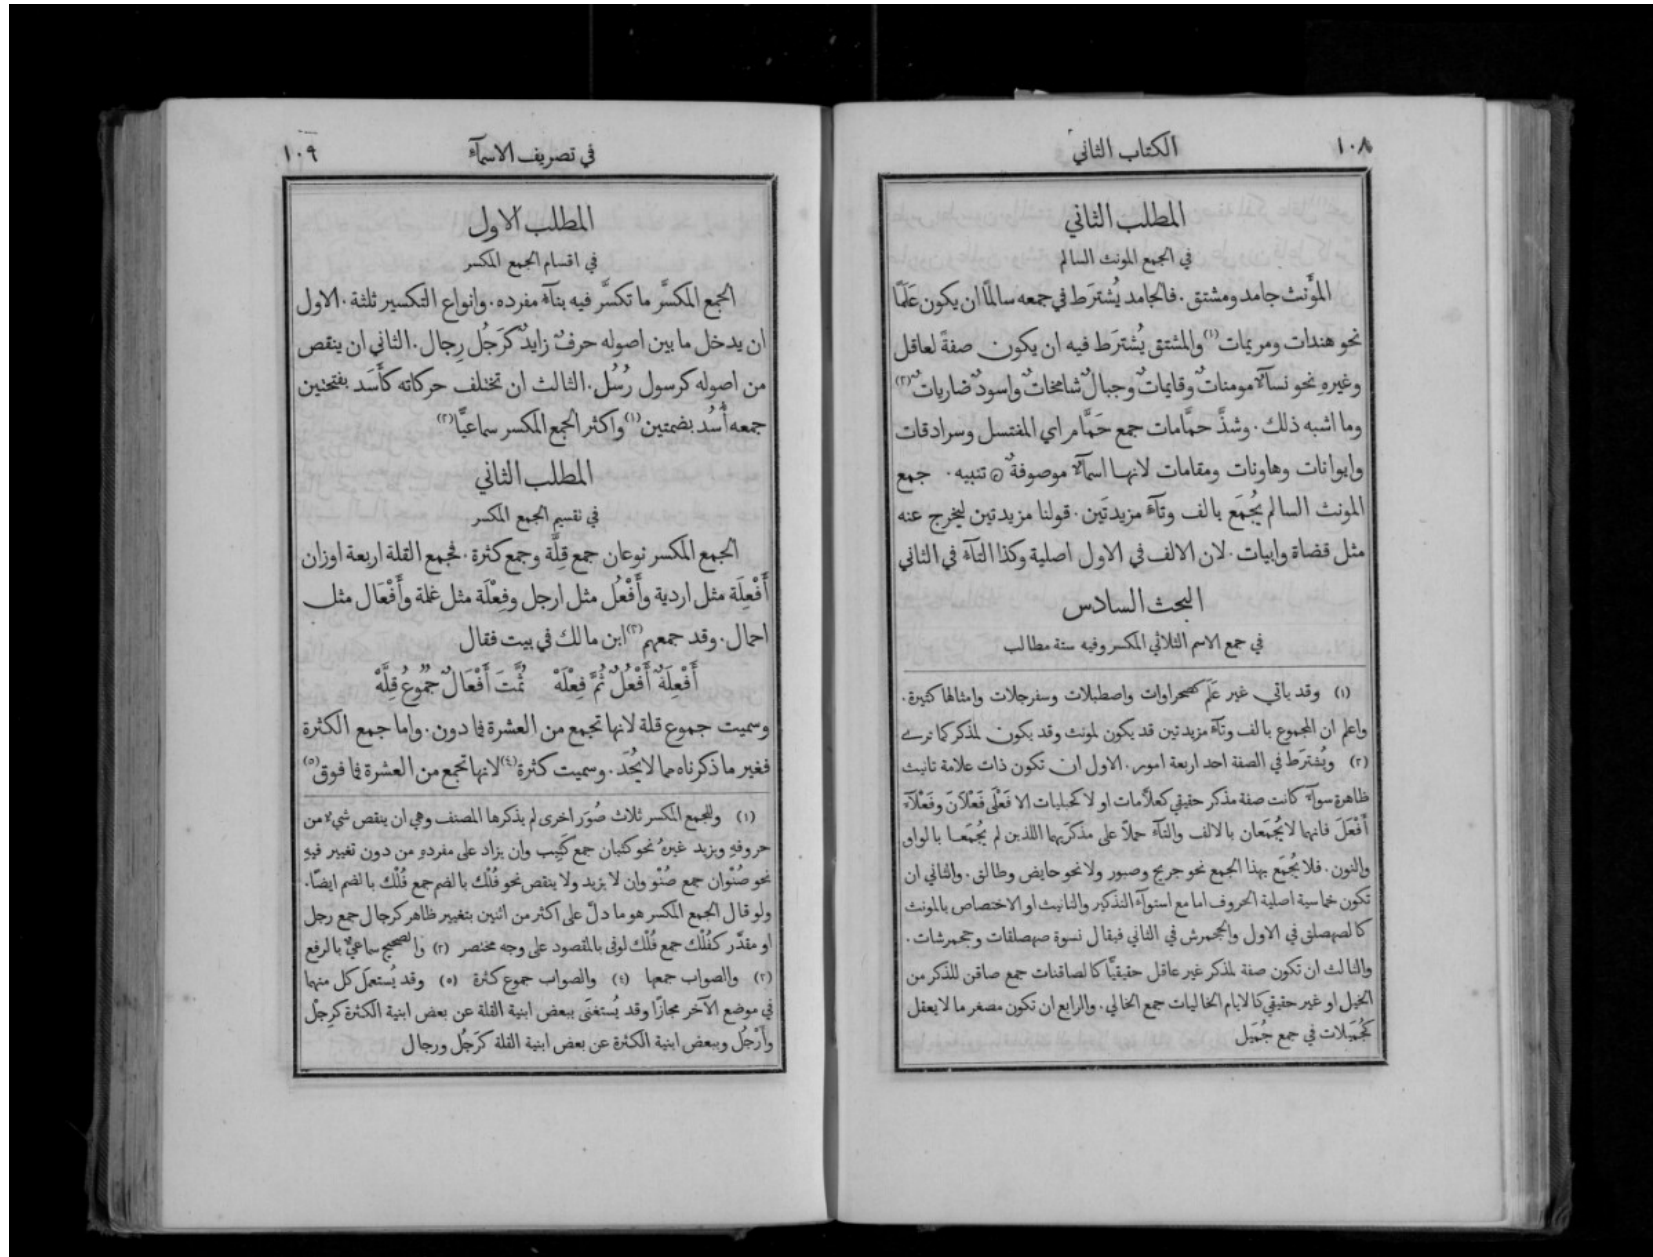 ١٠٨
الكتاب الثاني
المطلب الثاني
في الجمع المونث السالم
المؤَنث جامد ومشتق. فالجامد يُشترَط في جمعه سالمًا ان يكون عَلَمًا
نحو هندات ومريمات (١) والمشتق يُشترَط فيه ان يكون صفةً لعاقل
وغيرهِ نحو نسآءٌ مومناتٌ وقايماتٌ وجبالٌ شامخاتٌ واسودٌ ضارياتٌ (٢)
وما اشبه ذلك. وشذَّ حمَّامات جمع حَمَّام اي المغتسل وسرادقات
وايوانات وهاونات ومقامات لانها اسمآءٌ موصوفةٌ ۞ تنبيه. جمع
المونث السالم يُجْمَع بالف وتآءٍ مزيدتَين. قولنا مزيدتين ليخرج عنه
مثل قضاة وابيات. لان الالف في الاول اصلية وكذا التآء في الثاني
البحث السادس
في جمع الاسم الثلاثي المكسر وفيه ستة مطالب
(١) وقد ياتي غير عَلَم كصحراوات واصطبلات وسفرجلات وامثالها كثيرة.
واعلم ان المجموع بالف وتآء مزيدتين قد يكون لمونث وقد يكون لمذكر كما ترى
(٢) ويُشترَط في الصفة احد اربعة امور. الاول ان تكون ذات علامة تانيث
ظاهرة سوآء كانت صفة مذكر حقيقي كعلاَّمات او لا كحبليات الا فَعْلَى فَعْلَانَ وفَعْلَآءَ
أَفْعَلَ فانهما لا يُجْمَعان بالالف والتآء حملاً على مذكرَيهما اللذين لم يُجْمَعا بالواو
والنون. فلا يُجْمَع بهذا الجمع نحو جريح وصبور ولا نحو حايض وطالق. والثاني ان
تكون خماسية اصلية الحروف اما مع استوآء التذكير والتانيث او الاختصاص بالمونث
كالصهصلق في الاول والجحمرش في الثاني فيقال نسوة صهصلقات وجحمرشات.
والثالث ان تكون صفة لمذكر غير عاقل حقيقيًّا كالصافنات جمع صافن للذكر من
الخيل او غير حقيقي كالايام الخاليات جمع الخالي. والرابع ان تكون مصغر ما لا يعقل
كجُمَيلات في جمع جُمَيل
في تصريف الاسمآء
١٠٩
المطلب الاول
في اقسام الجمع المكسر
الجمع المكسَّر ما تكسَّر فيه بنآءُ مفرده. وانواع التكسير ثلثة. الاول
ان يدخل ما بين اصوله حرفٌ زايدٌ كرَجُل رِجال. الثاني ان ينقص
من اصوله كرسول رُسُل. الثالث ان تختلف حركاته كأَسَد بفتحتين
جمعه أُسُد بضمتين (١) واكثر الجمع المكسر سماعيًّا (٢)
المطلب الثاني
في تقسيم الجمع المكسر
الجمع المكسر نوعان جمع قِلَّة وجمع كثرة. فجمع القلة اربعة اوزان
أَفْعِلَة مثل اردية وأَفْعُل مثل ارجل وفِعْلَة مثل غلمة وأَفْعَال مثل
احمال. وقد جمعهم (٣) ابن مالك في بيت فقال
أَفْعِلَةٌ أَفْعُلٌ ثُمَّ فِعْلَهْ ثُمَّتَ أَفْعَالٌ جُمُوعُ قِلَّهْ
وسميت جموع قلة لانها تجمع من العشرة فما دون. واما جمع الكثرة
فغير ما ذكرناه مما لا يُحَدّ. وسميت كثرة (٤) لانها تجمع من العشرة فما فوق (٥)
(١) وللجمع المكسر ثلاث صُوَر اخرى لم يذكرها المصنف وهي ان ينقص شيءٌ من
حروفهِ ويزيد غيرهُ نحو كثبان جمع كَثِيب وان يزاد على مفردهِ من دون تغيير فيهِ
نحو صُنْوان جمع صُنْو وان لا يزيد ولا ينقص نحو فُلْك بالضم جمع فُلْك بالضم ايضًا.
ولو قال الجمع المكسر هو ما دلَّ على اكثر من اثنين بتغيير ظاهر كرجال جمع رجل
او مقدَّر كفُلْك جمع فُلْك لوفى بالمقصود على وجه مختصر (٢) والصحيح سماعيٌّ بالرفع
(٣) والصواب جمعها (٤) والصواب جموع كثرة (٥) وقد يُستعمَل كل منهما
في موضع الآخر مجازًا وقد يُستغنَى ببعض ابنية القلة عن بعض ابنية الكثرة كرِجْل
وأَرْجُل وببعض ابنية الكثرة عن بعض ابنية القلة كرَجُل ورجال